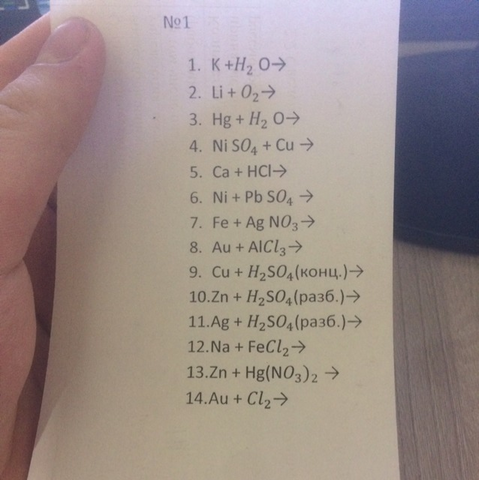 №1
1. K +H₂ O→
2. Li + O₂→
3. Hg + H₂ O→
4. Ni SO₄ + Cu →
5. Ca + HCl→
6. Ni + Pb SO₄ →
7. Fe + Ag NO₃→
8. Au + AlCl₃→
9. Cu + H₂SO₄(конц.)→
10.Zn + H₂SO₄(разб.)→
11.Ag + H₂SO₄(разб.)→
12.Na + FeCl₂→
13.Zn + Hg(NO₃)₂ →
14.Au + Cl₂→